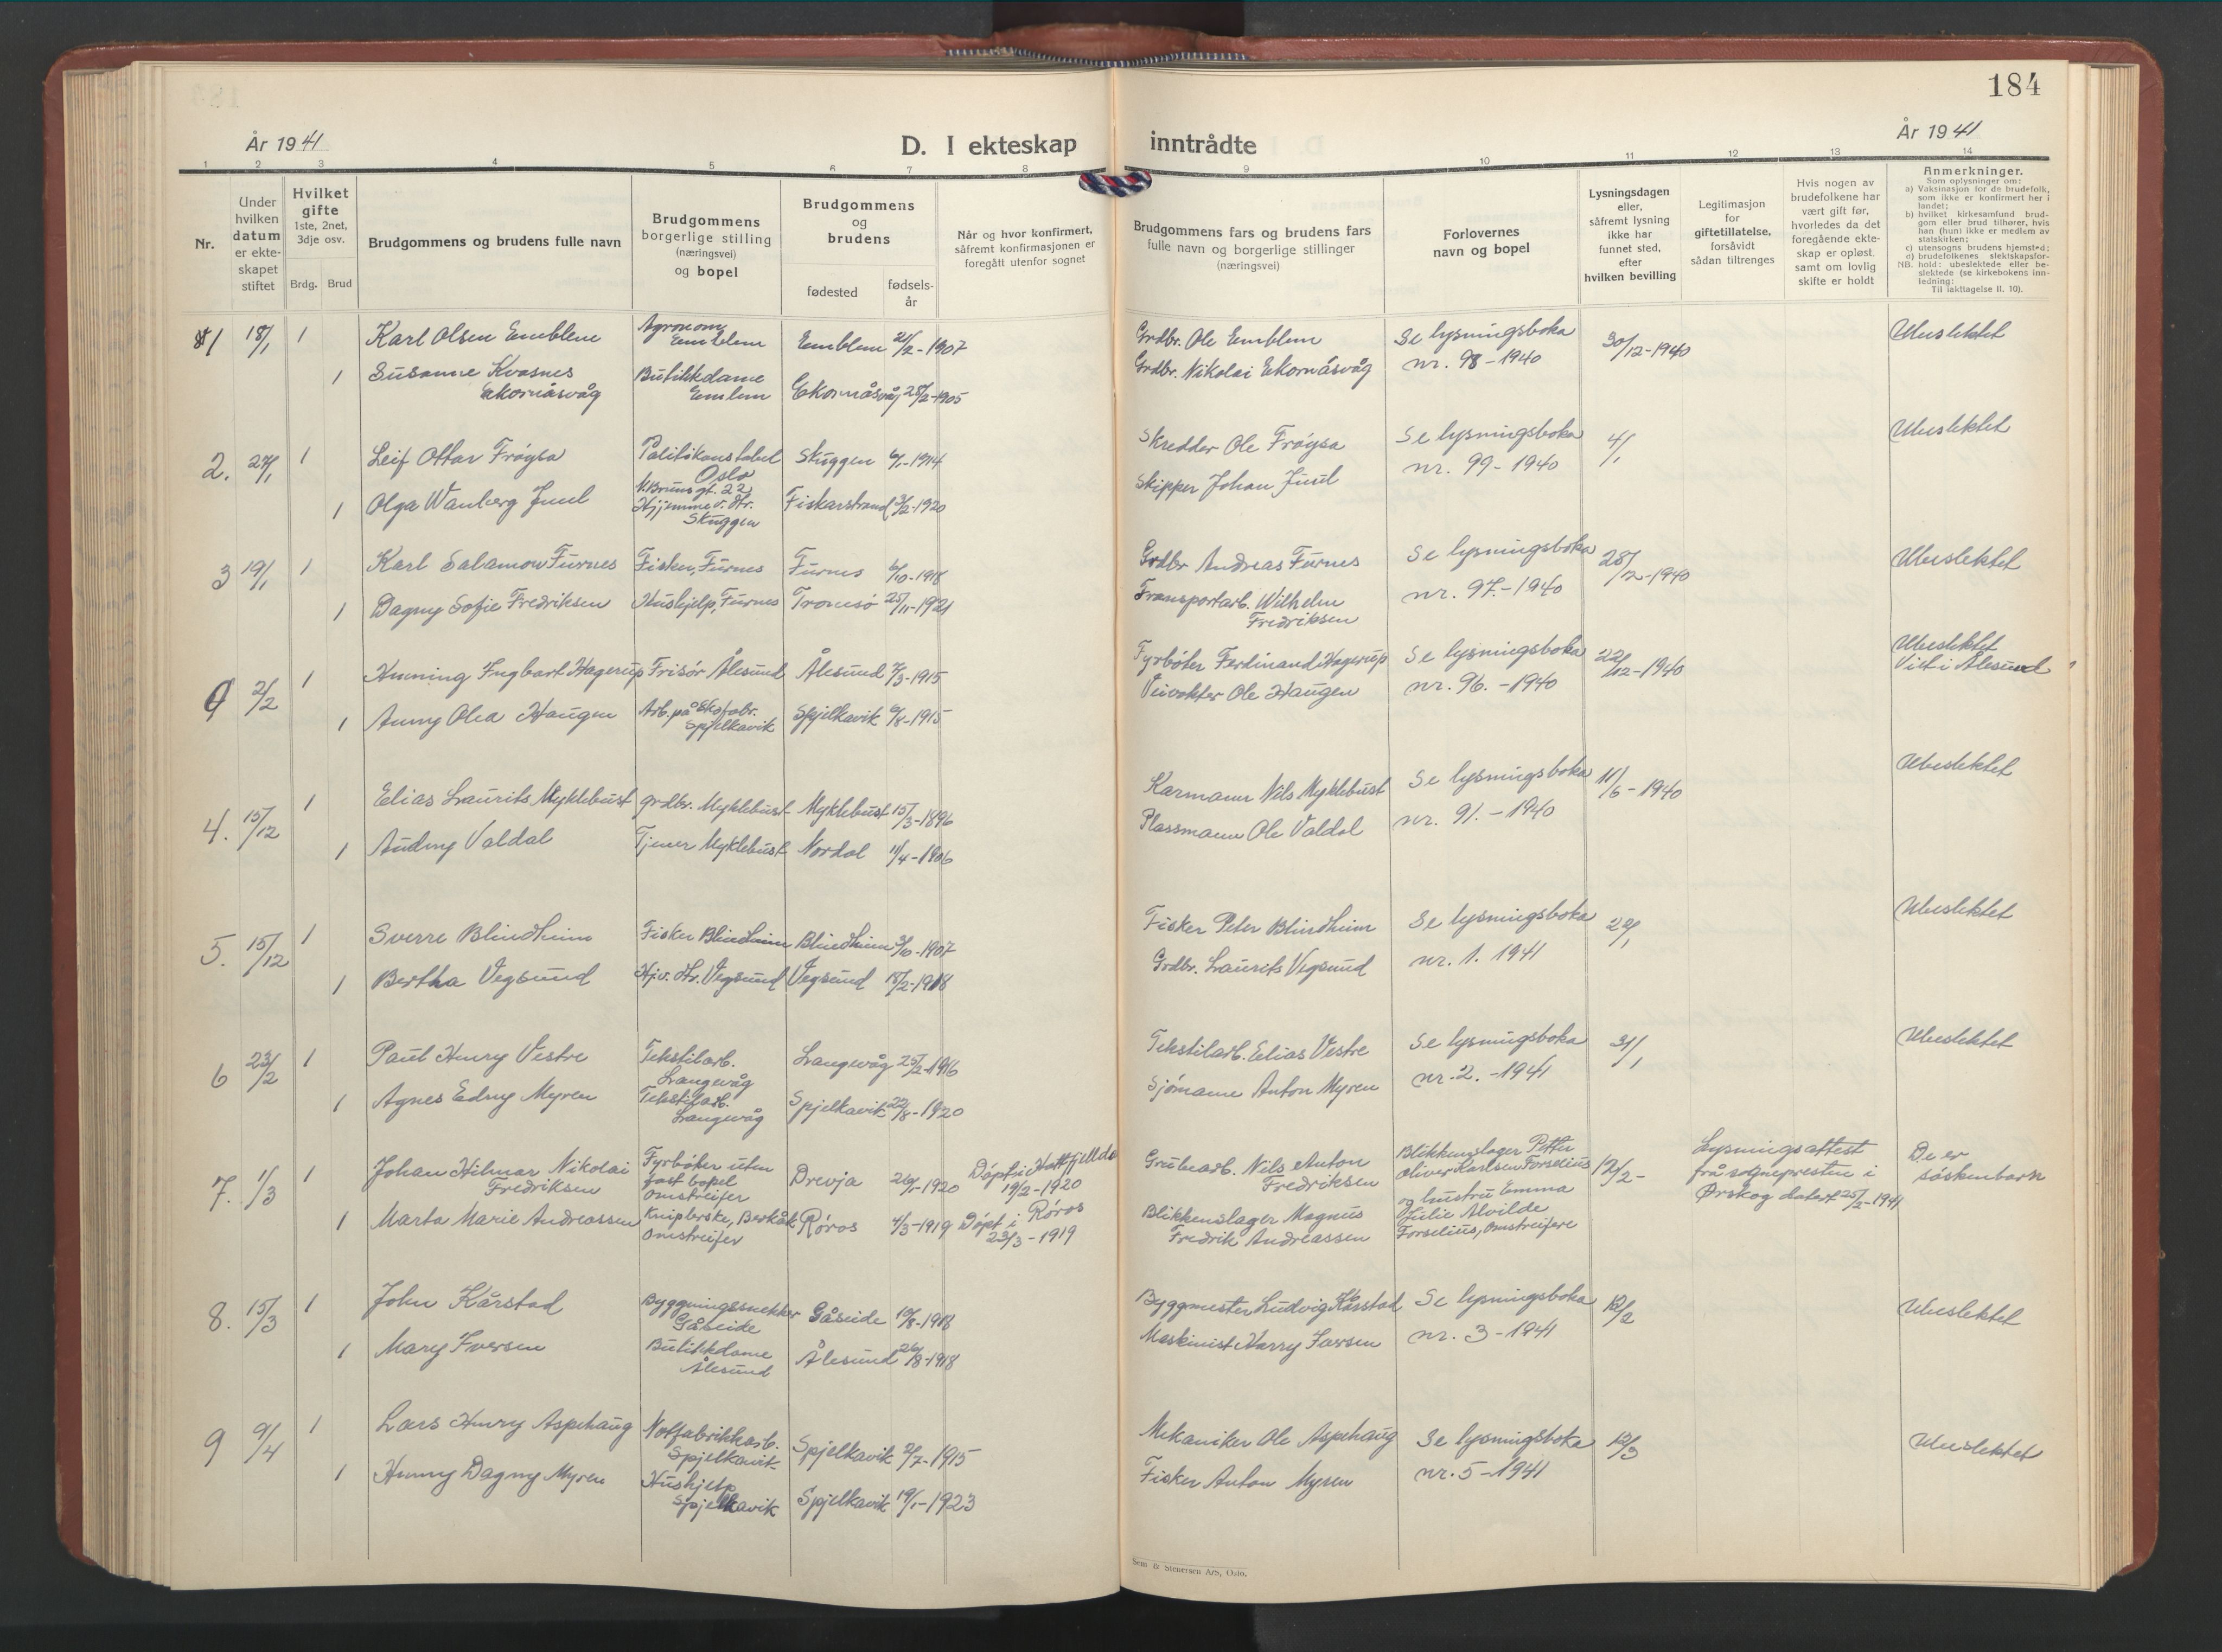 184
År 1941
D. I ekteskap inntrådte
År 1941
1 2 3 4 5 6 7 8 9 10 11 12 13 14
Nr.
Under hvilken datum er ekte-skapet stiftet
Hvilket gifte 1ste, 2net, 3dje osv.
Brdg. Brud
Brudgommens og brudens fulle navn
Brudgommens borgerlige stilling (næringsvei) og bopel
Brudgommens og brudens
fødested
fødsels-år
Når og hvor konfirmert, såfremt konfirmasjonen er foregått utenfor sognet
Brudgommens fars og brudens fars fulle navn og borgerlige stillinger (næringsvei)
Forlovernes navn og bopel
Lysningsdagen eller, såfremt lysning ikke har funnet sted, efter hvilken bevilling
Legitimasjon for giftetillatelse, forsåvidt sådan tiltrenges
Hvis nogen av brudefolkene har vært gift før, hvorledes da det foregående ekte-skap er opløst, samt om lovlig skifte er holdt
Anmerkninger.
Som oplysninger om:
a) Vaksinasjon for de brudefolk, som ikke er konfirmert her i landet;
b) hvilket kirkesamfund brud-gom eller brud tilhører, hvis han (hun) ikke er medlem av statskirken;
c) utensogns brudens hjemsted;
d) brudefolkenes slektskapsfor-hold: ubeslektede eller be-slektede (se kirkebokens inn-ledning:
NB.
Til iakttagelse II. 10).
1 18/1 1 Karl Olsen Emblem Agronom Emblem Emblem 21/2-1907 Grdbr. Ole Emblem Se lysningsboka 30/12-1940 Ubeslektet
1 Susanne Kvasnes Ekornåsvåg Butikkdame Emlem Ekornåsvåg 28/2-1905 Grdbr. Nikolai Ekornåsvåg nr. 98-1940
2. 27/1 1 Leif Ottar Frøysa Politikonstabel Oslo Skuggen 6/1-1914 Skredder Ole Frøysa Se lysningsboka 4/1 Ubeslektet
1 Olga Wanberg Juul Hjemmev. Hr. Skuggen Fiskarstrand 3/2-1920 Skipper Johan Juul nr. 99-1940
3 19/1 1 Karl Salamon Furnes Fisker, Furnes Furnes 6/10-1918 Grdbr Andreas Furnes Se lysningsboka 28/12-1940 Ubeslektet
1 Dagny Sofie Fredriksen Hushjelp, Furnes Tromsø 25/11-1921 Transportarb. Wilhelm Fredriksen nr. 97.-1940
2/2 1 Henning Ingbart Hagerup Frisør Ålesund Ålesund 7/3-1915 Fyrbøter Ferdinand Hagerup Se lysningsboka 22/12-1940 Ubeslektet
Viet i Ålesund
1 Anny Olea Haugen Arb. på Skofabr. Spjelkavik Spjelkavik 6/8-1915 Veivokter Ole Haugen nr. 96.-1940
4. 15/12 1 Elias Laurits Myklebust grdbr. Myklebust Myklebust 15/3-1896 Karmann Nils Myklebust Se lysningsboka 11/6-1940 Ubeslektet
1 Audny Valdal Tjener Myklebust Nordal 11/4-1906 Plassmann Ole Valdal nr. 91.-1940
5. 15/12 1 Sverre Blindheim Fisker Blindheim Blindheim 3/6-1907 Fisker Peter Blindheim Se lysningsboka 22/1 Ubeslektet
1 Bertha Vegsund Hjv. Hr. Vegsund Vegsund 18/2-1918 Grdbr. Laurits Vegsund nr. 1. 1941
6 23/2 1 Paul Henry Vestre Tekstilarb. Langevåg Langevåg 25/2-1916 Tekstilarb. Elias Vestre Se lysningsboka 31/1 Ubeslektet
1 Agnes Edny Myren Tekstilarb. Langevåg Spjelkavik 22/8-1920 Sjømann Anton Myren nr. 2.-1941
7. 1/3 1 Johan Hilmar Nikolai Fredriksen Fyrbøter uten fast bopel omstreifer Drevja 26/1-1920 Døpt i Hattfjelldal 19/2-1920 Grubearb. Nils Anton Fredriksen Blikkenslager Petter Oliver Karlsen Forselius 12/2- Lysningsattest frå sognepresten i Ørskog datert 25/2-1941 De er søskenbarn
1 Marta Marie Andreassen Kniplerske, Berkåk omstreifer Røros 4/3-1919 Døpt i Røros 23/3-1919 Blikkenslager Magnus Fredrik Andreassen og hustru Emma Julie Alvilde Forselius, omstreifere
8. 15/3 1 John Kårstad Byggningssnekker Gåseide Gåseide 19/8-1918 Byggmester Ludvig Kårstad Se lysningsboka 12/2 Ubeslektet
1 Mary Iversen Butikkdame Ålesund Ålesund 26/8-1918 Maskinist Harry Iversen nr. 3-1941
9 9/4 1 Lars Henry Aspehaug Notfabrikkarb. Spjelkavik Spjelkavik 2/7-1915 Mekaniker Ole Aspehaug Se lysningsboka 12/3 Ubeslektet
1 Henny Dagny Myren Hushjelp Spjelkavik Spjelkavik 19/1-1923 Fisker Anton Myren nr. 5-1941
Sem & Stenersen A/S, Oslo.